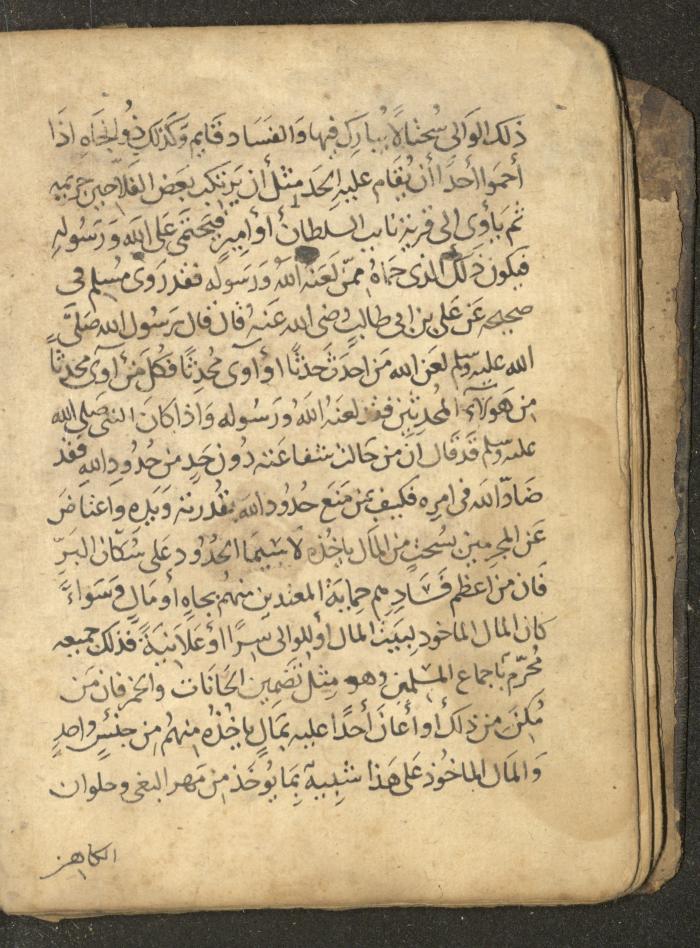 ذلك الوالى سحتا لا يبارك فيها والفساد قايم وكذلك ذو الجاه اذا
أحموا أحدا أن يقام عليه الحد مثل أن يرتكب بعض الفلاحين جريمه
ثم يأوى الى قرية نايب السلطان أو أمير فيحتمى على الله ورسوله
فيكون ذلك الذى حماه ممن لعنه الله ورسوله فقد روى مسلم فى
صحيحه عن على بن ابى طالب رضى الله عنه قال قال رسول الله صلى
الله عليه وسلم لعن الله من احدث حدثا او آوى محدثا فكل من آوى محدثا
من هولاء المحدثين فقد لعنه الله ورسوله واذا كان النبى صلى الله
عليه وسلم قد قال ان من حالت شفاعته دون حد من حدود الله فقد
ضاد الله فى امره فكيف بمن منع حدود الله بقدرته ويده واعتاض
عن المجرمين بسحت من المال ياخذه لا سيما الحدود على سكان البر
فان من اعظم فسادهم حماية المعتدين منهم بجاه أو مال وسواء
كان المال الماخود لبيت المال أو للوالى سرا أو علانية فذلك جميعه
محرم باجماع المسلمين وهو مثل تضمين الحانات والخمر فان من
مكن من ذلك أو أعان أحدا عليه بمال ياخذه منهم من جنس واحد
والمال الماخوذ على هذا شبيه بما يوخذ من مهر البغى وحلوان
الكاهن